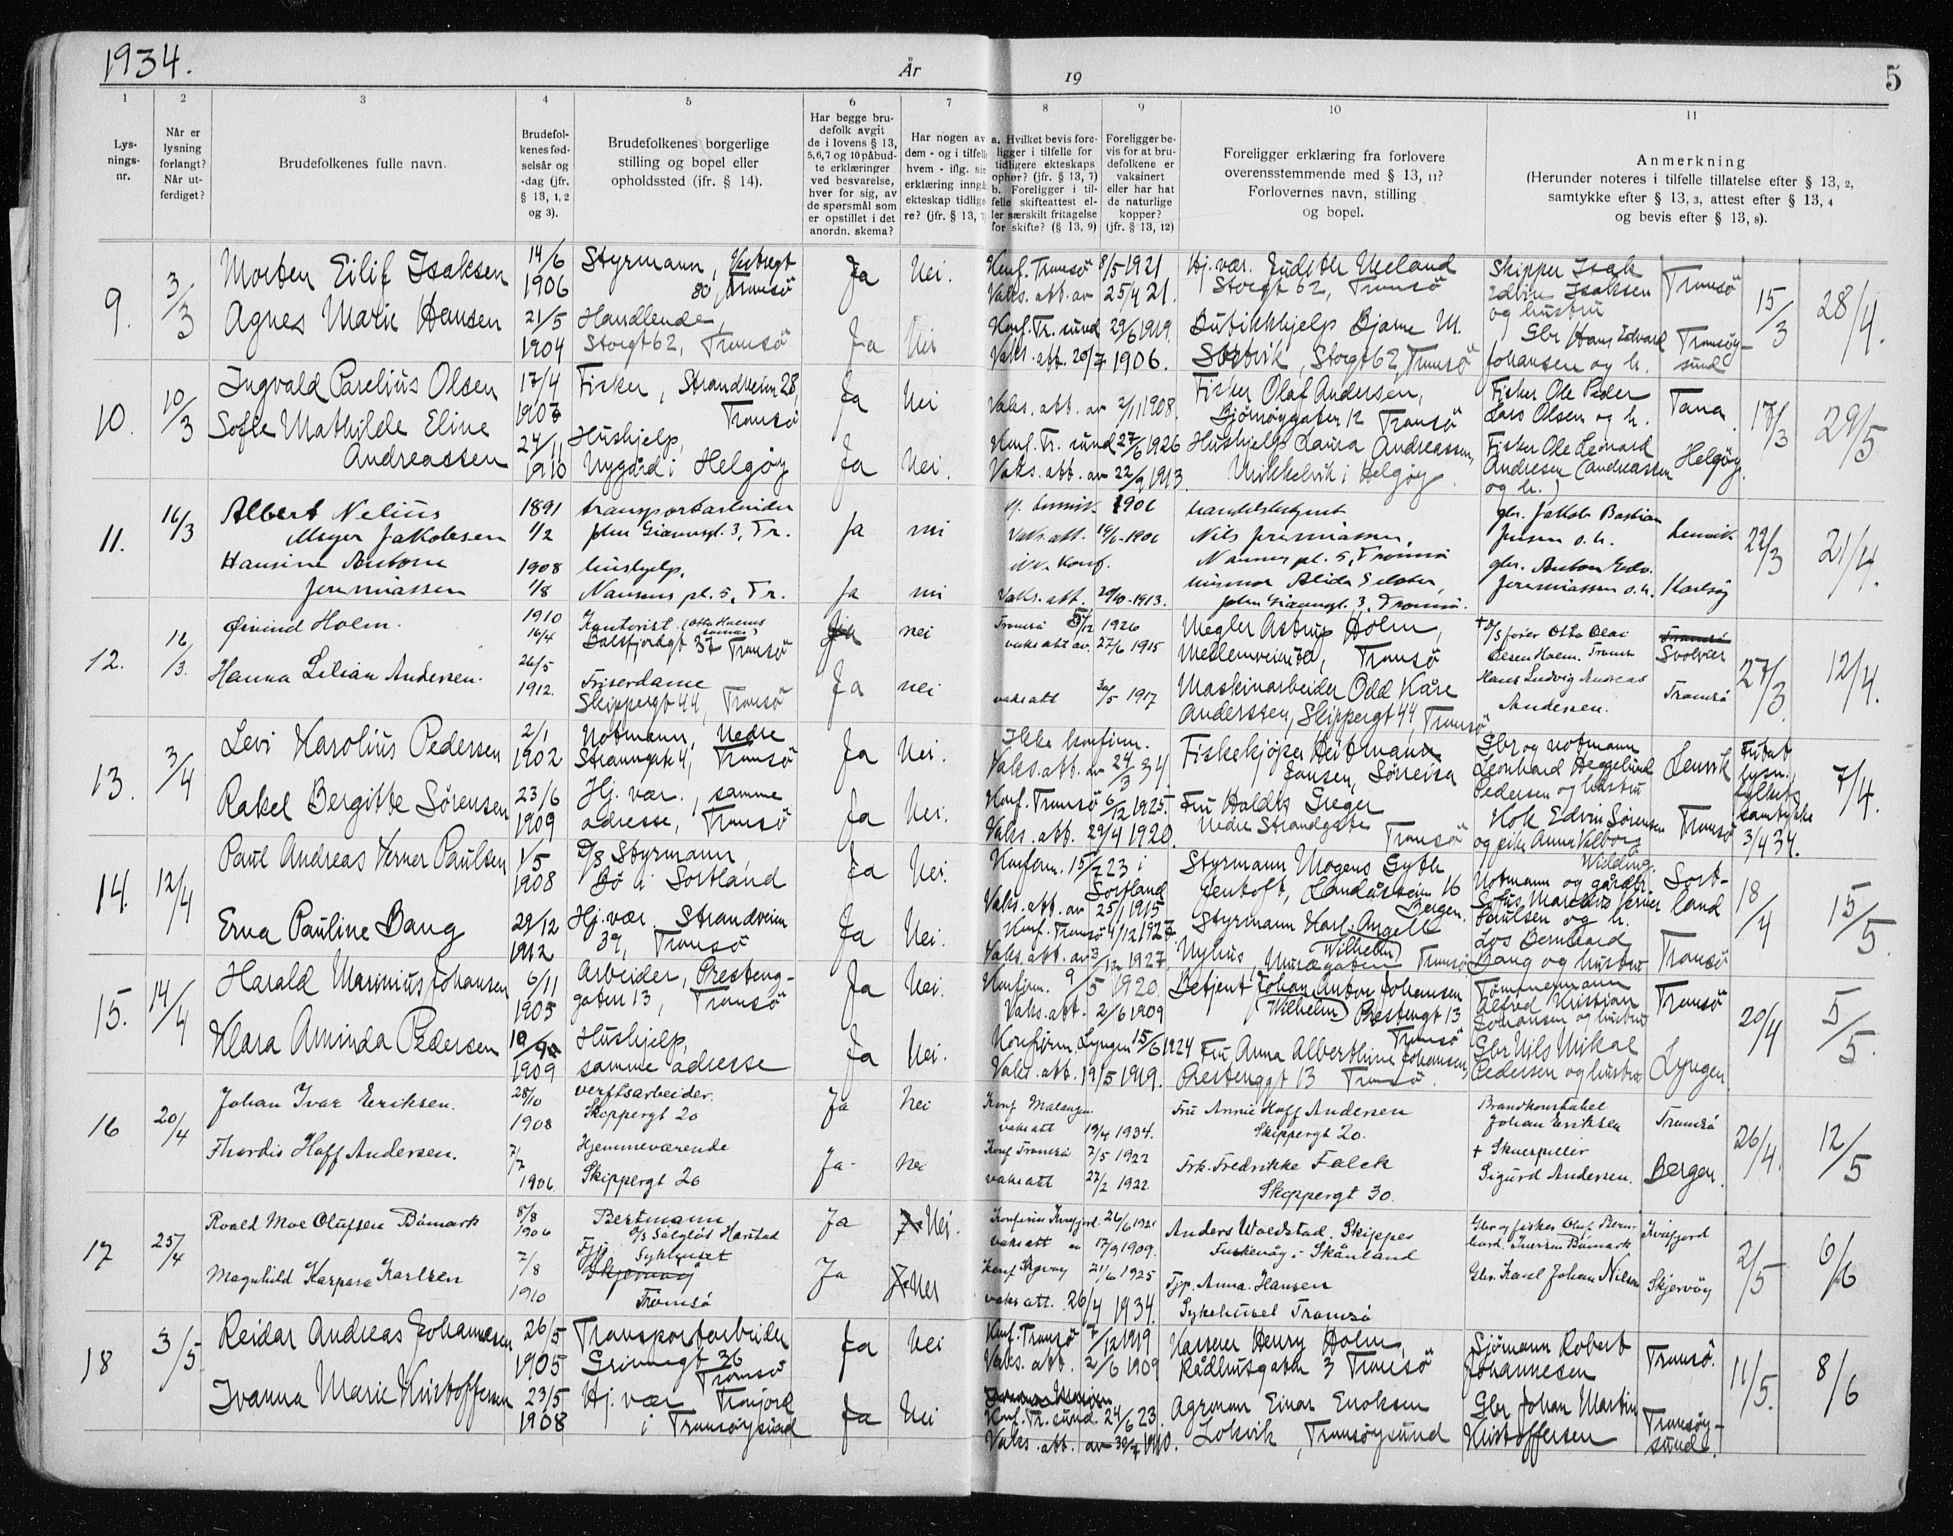 1934.
År
19
5
1
2
3
4
5
6
7
8
9
10
11
Lys-
nings-
nr.
Når er
lysning
forlangt?
Når ut-
ferdiget?
Brudefolkenes fulle navn.
Brudefol-
kenes fød-
selsår og
-dag (jfr.
§ 13, 1, 2
og 3).
Brudefolkenes borgerlige
stilling og bopel eller
opholdssted (jfr. § 14).
Har begge bru-
defolk avgit
de i lovens § 13,
5,6,7 og 10 påbud-
te erklæringer
ved besvarelse,
hver for sig, av
de spørsmål som
er opstillet i det
anordn. skema?
Har nogen av
dem - og i tilfelle
hvem - iflg. sin
erklæring inngå
ekteskap tidlige-
re? (jfr. § 13, 7)
a. Hvilket bevis fore-
ligger i tilfelle for
tidligere ekteskaps
ophør? (jfr. § 13, 7)
b. Foreligger i til-
felle skifteattest el-
ler særskilt fritagelse
for skifte? (§ 13, 9)
Foreligger be-
vis for at bru-
defolkene er
vaksinert
eller har hat
de naturlige
kopper?
(jfr. § 13, 12)
Foreligger erklæring fra forlovere
overensstemmende med § 13, 11?
Forlovernes navn, stilling
og bopel.
Anmerkning
(Herunder noteres i tilfelle tillatelse efter § 13, 2,
samtykke efter § 13, 3, attest efter § 13, 4
og bevis efter § 13, 8).
9.
3/3
Morten Eilif Isaksen
14/6
1906
Styrmann,
80, Tromsö
Ja
Nei.
Konf. Tromsö 8/5 1921
Vaks. att. av 25/4 21.
Hj. vær. Judith
Storgt 62, Tromsö
Skipper Isak
Edvin Isaksen
og hustru
Tromsö
15/3
28/4.
Agnes Marie Hansen
21/5
1904
Handlende,
Storgt 62, Tromsö
Ja
Nei
Konf. Tr. sund 29/6 1919.
Vaks. att. 20/7 1906.
Butikkhjelp Bjarne M.
Storgt 62, Tromsö
Gbr Hans Edvard
Johansen og h.
Tromsöy-
sund
10.
10/3
Ingvald Parelius Olsen
17/4
Fisker, Strandveien 28,
Tromsö
Ja
Nei
Vaks. att. av 2/11 1908.
Fisker Olaf Andersen,
Bjørnøygaten 12 Tromsö
Fisker Ole Peder
Lars Olsen og h.
Tana
17/3
29/5
Sofie Mathilde Eline
Andreassen
24/11
1910
Hushjelp,
Nygård i Helgøy
Ja
Nei.
Konf. Tr. sund 27/6 1926
Vaks. att. av 22/9 1913.
Hushjelp Laura Andreassen,
i Helgøy.
Fisker Ole Leonard
Andresen (Andreassen
og h.)
Helgøy.
11.
16/3
Albert Nelius
Meyer Jakobsen
1891
1/2
transportarbeider
John Giæversgt. 3, Tr.
ja
nei
1906
vaks. att.
Nils Jeremiassen,
Nansens pl. 5, Tromsö
gbr. Jakob Bastian
Jensen o. h.
Lenvik
22/3
21/4.
Hansine Antone
Jeremiassen
1908
1/8
hushjelp,
Nansens pl. 5, Tr.
ja
nei
konf.
vaks. att. 29/10-1913.
John Giæversgt. 3, Tromsö.
gbr. Anton Edv.
Jeremiassen o. h.
Karlsøy
12.
16/3.
Øivind Holm.
1910
16/4
Kontorist
Balsfjordgt 37 Tromsö
Ja
nei
Tromsö 5/12 1926
vaks att av. 27/6 1915
Megler Astrup Holm,
Tromsö
Otto Olai
Olsen Holm. Tromsö
Tromsö
Svolvær
27/3.
12/4.
Hanna Lilian Andersen.
26/5
1912.
Friserdame
Skippergt 44, Tromsö
Ja
nei
vaks att 30/5 1917
Maskinarbeider Odd Kåre
Anderssen, Skippergt 44, Tromsö
Hans Ludvig Andreas
Andersen.
Tromsö
13.
3/4
Levi Karolius Pedersen
2/1
1902
Notmann, Nedre
Stranngate 4, Tromsö
Ja
Nei.
Ikke konfirm.
Vaks. att. av 24/3 34
Fiskekjøper Heitmann
Jansen, Sörreisa
Gbr og notmann
Leonhard Heggelund
Pedersen og hustru
Lenvik
lysn.
fylkets
samtykke
3/4 34.
7/4.
Rakel Bergitte Sörensen
23/6
1909
Hj. vær., samme
adresse, Tromsö
Ja
Nei.
Konf. Tromsö 6/12 1925.
Vaks. att. 29/4 1920.
Fru Haldis Greger
Nedre Strandgate Tromsö
Kok Edvin Sörensen
og pike Anna Valborg
Widding.
Tromsö
14.
12/4
Paul Andreas Verner Paulsen
1/5
1908
D/S Styrmann,
Bö i Sortland
Ja
Nei.
Konfirm. 15/7 23 i
Sortland
Vaks. att. av 25/1 1915
Styrmann Mogens Gyth
Gentoft, Landåsveien 16
Bergen.
Notmann og gårdbr.
Sofus Marelius Verner
Paulsen og h.
Sort-
land
18/4
15/5.
Erna Pauline Bang
29/12
1912
Hj. vær. Strandveien
39, Tromsö
Ja
Nei.
Konf. Tromsö 4/12 1927
Vaks. att. av 3/12 1927
Styrmann Karl Angell
Wilhelm
Nyhus, Tromsö
Los Bernhard
Bang og hustru
Tromsö
15.
14/4
Harald Marinius Johansen
6/11
1905
Arbeider, Presteng-
gaten 13, Tromsö
Ja
Nei.
Konfirm. 9/5 1920
Vaks. att. 2/6 1909
Betjent Johan Anton Johansen
(Wilhelm) Prestengt 13
Tromsö
Tømmermann
Alfred Kristian
Johansen og hustru
Tromsö
20/4
5/5.
Klara Aminda Pedersen
1909
Hushjelp,
samme adresse
Ja
Nei.
Konfirm. Lyngen 15/6 1924
Vaks. att. 19/5 1919.
Fru Anna Alberthine Johansen,
Prestenggt 13 Tromsö.
Gbr Nils Mikal
Pedersen og hustru
Lyngen
16
20/4
Johan Ivar Eriksen.
28/10
1908
verftsarbeider.
Skippergt 20
Ja
Nei
Konf Malangen
vaks att 19/4 1934.
Fru Annie Hoff Andersen
Skippergt 20.
Brandkonstabel
Johan Eriksen
Tromsö
26/4.
12/5
Thordis Hoff Andersen.
7/7
1906.
Hjemmeværende
Skippergt 20
Ja.
Nei
Konf Tromsö 7/5 1922
vaks att 22/2 1922.
Frk. Fredrikke Falck
Skippergt 30.
+ Skuespiller
Sigurd Andersen.
Bergen.
17
25/4
Roald Moe Olufsen Bömark
8/8
1906
Bestmann
o/s Salgløs Harstad
Ja
Nei.
Konfirm Kvæfjord 26/6 1921
vaks att av 17/9 1909.
Anders Woldstad. Skipper
i Skånland
Gbr og fisker Oluf Bern-
hard Iversen Bömark
Kvæfjord
2/5
6/6
Magnhild Kaspara Karlsen
7/8
1910
Tjp. Sykehuset
Skjervøy
Tromsö
Ja
Nei
Konf Skjervøy 21/6 1925
vaks att. 26/4 1934.
Tjp. Anna Hansen
Sykehuset Tromsö
Gbr. Karl Johan Nilsen
Skjervöy
18
3/5
Reidar Andreas Johannesen
26/5
1905
Transportarbeider
Grönnegt 36
Tromsö
Ja
Nei
Konf. Tromsö 7/12 1919
Vaks. att. 2/6 1909
Kasserer Henry Holm,
Rådhusgaten 3 Tromsö
Sjømann Robert
Johannesen
Tromsö.
11/5.
8/6
Ivanna Marie Kristoffersen
23/5
1908
Hj. vær Tromjord
i Tromsöysund
Ja
Nei
Konf. Tr. sund 24/6 23.
Vaks. att. av 1910.
Agronom Einar Enoksen
Lokvik, Tromsöysund
Gbr Johan Martin
Kristoffersen
Tromsöy-
sund.